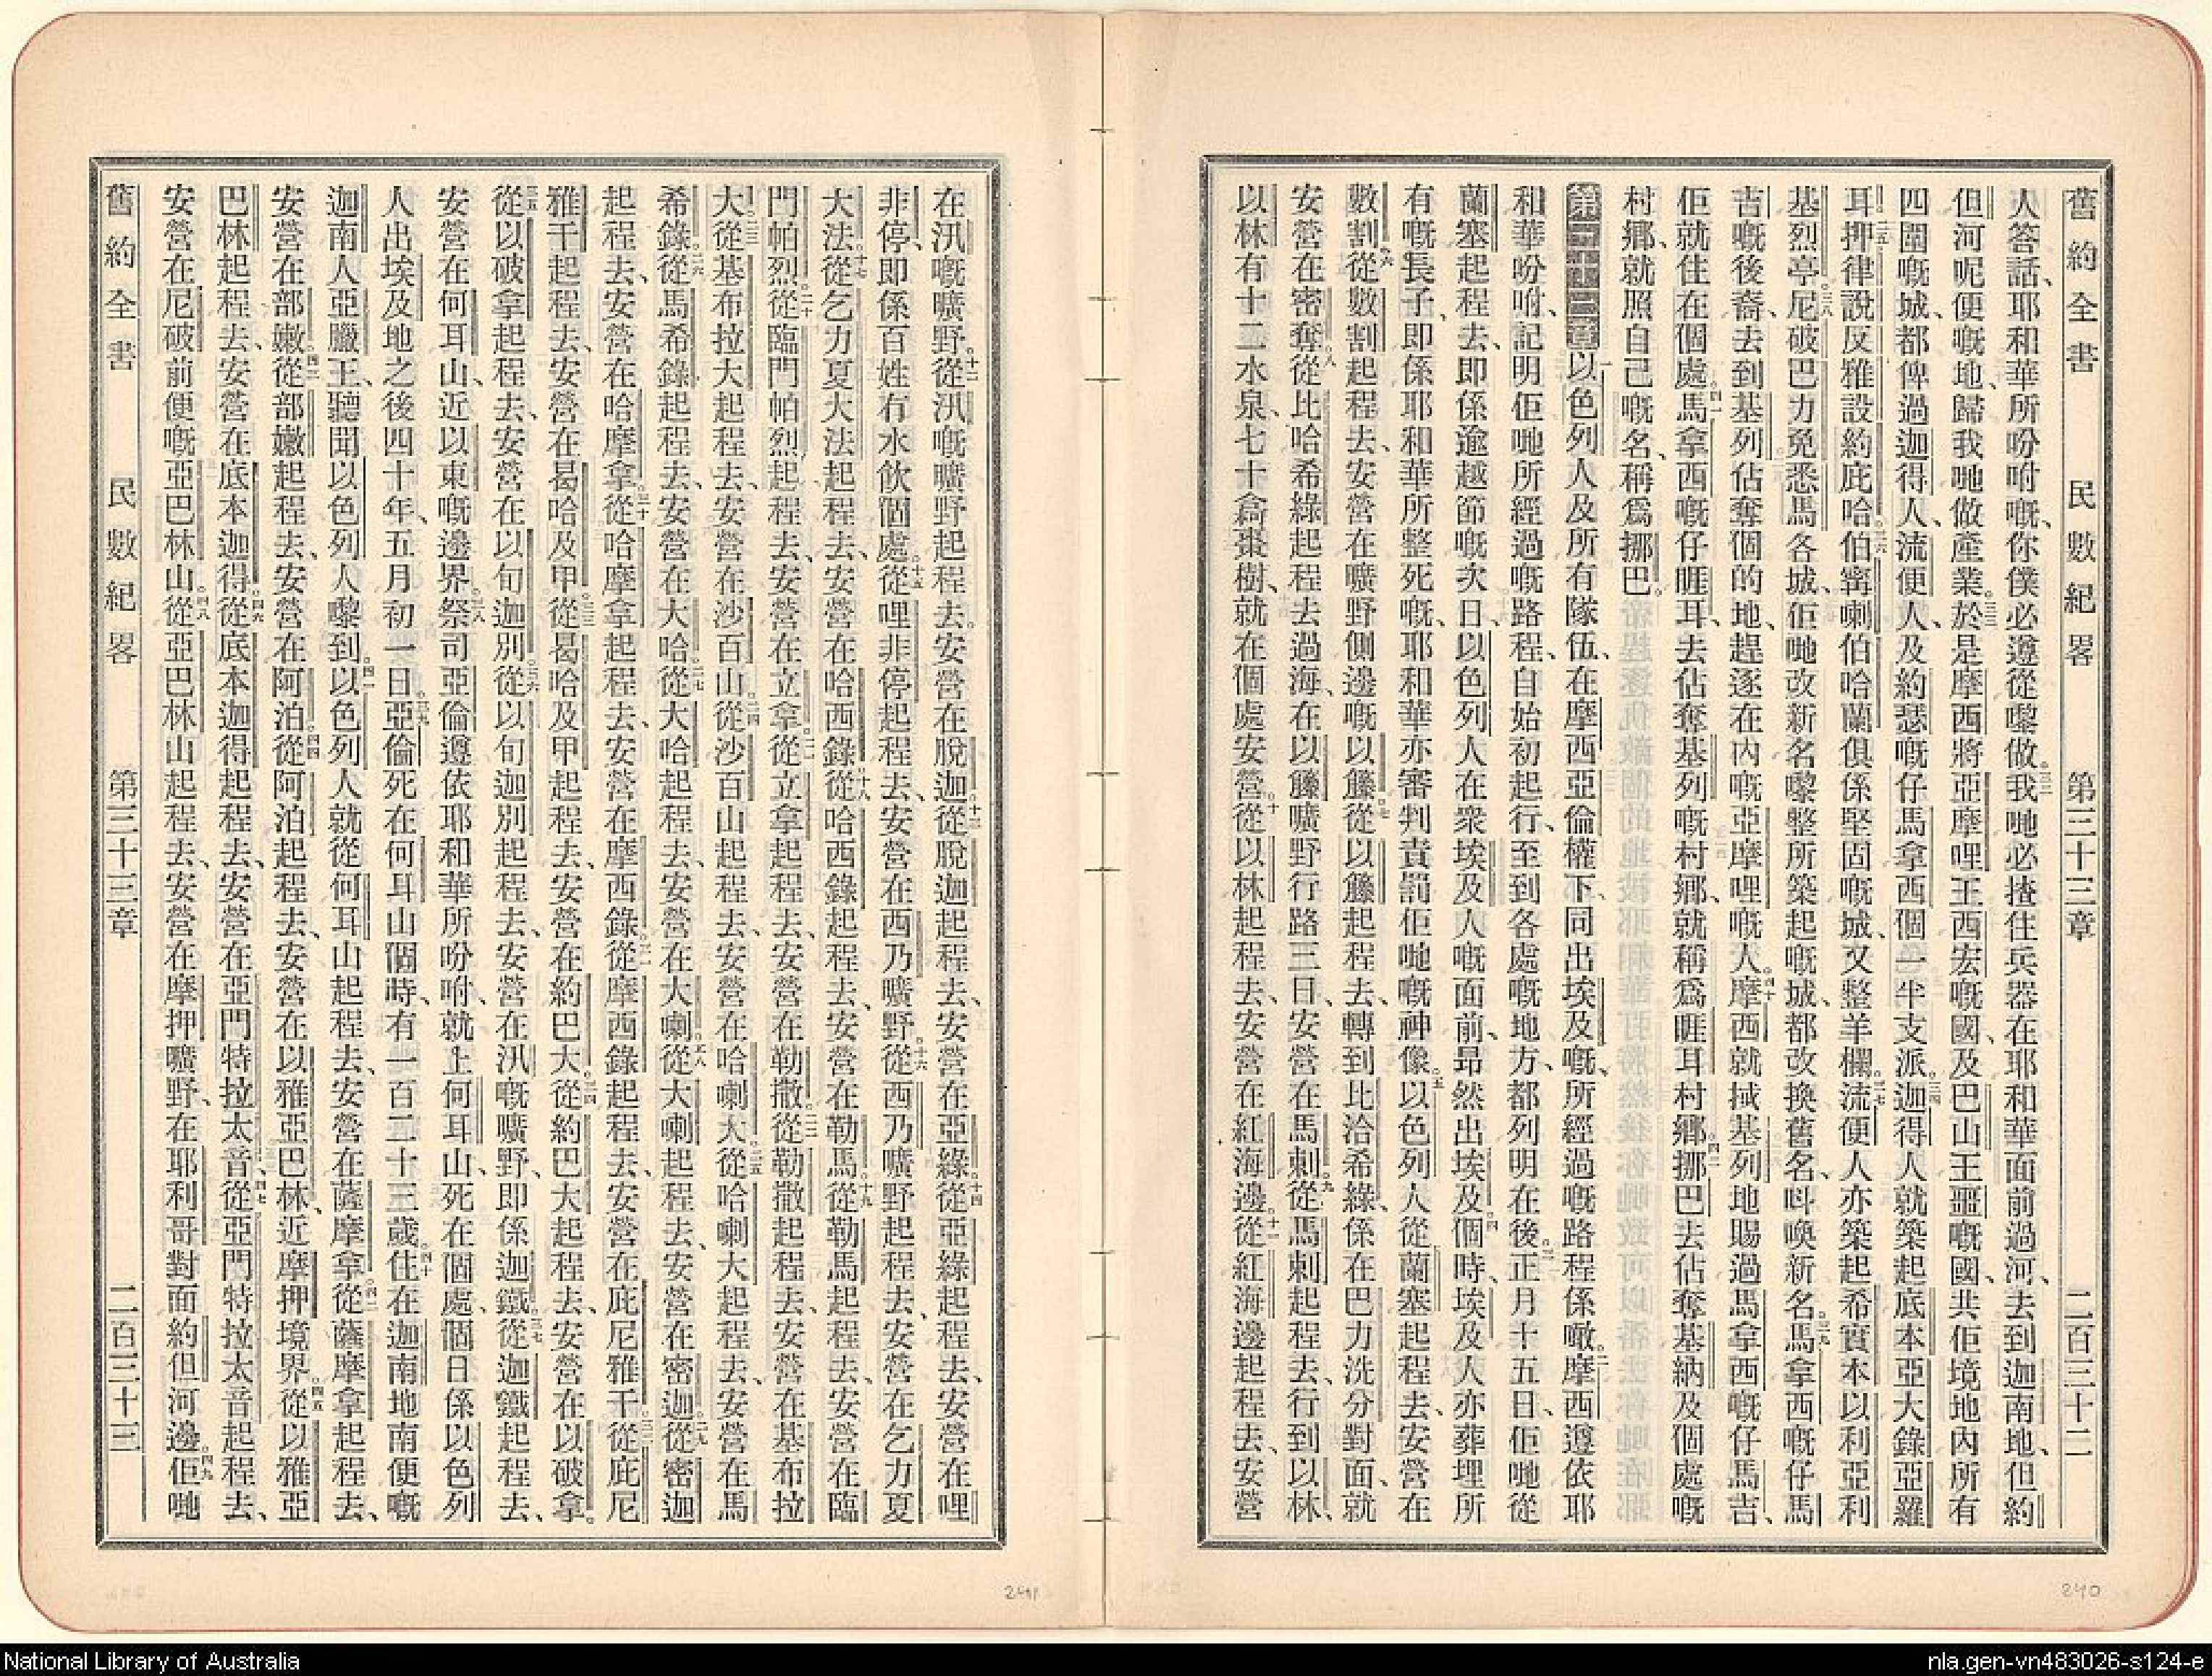 舊約全書　民數紀畧　第三十三章　二百三十二
人答話、耶和華所吩咐嘅、你僕必遵從嚟做。三二我哋必揸住兵器在耶和華面前過河、去到迦南地、但約
但河呢便嘅地、歸我哋做產業。三三於是摩西將亞摩哩王西宏嘅國、及巴山王噩嘅國、共佢境地內所有
四圍嘅城、都俾過迦得人、流便人、及約瑟嘅仔馬拿西個一半支派。三四迦得人就築起底本亞大錄亞羅
耳。三五押律說反雅設約庇哈。三六伯寗喇伯哈蘭俱係堅固嘅城、又整羊欄。三七流便人亦築起希實本以利亞利
基烈亭。三八尼破巴力免悉馬各城、佢哋改新名嚟整所築起嘅城、都改換舊名、呌喚新名。三九馬拿西嘅仔馬
吉嘅後裔、去到基列佔奪個的地、趕逐在內嘅亞摩哩嘅人。四十摩西就㧤基列地賜過馬拿西嘅仔馬吉、
佢就住在個處。四一馬拿西嘅仔睚耳去佔奪基列嘅村鄉、就稱爲睚耳村鄉。四二挪巴去佔奪基納及個處嘅
村鄉、就照自己嘅名、稱爲挪巴。
第三十三章一以色列人及所有隊伍、在摩西亞倫權下、同出埃及嘅、所經過嘅路程係噉。二摩西遵依耶
和華吩咐、記明佢哋所經過嘅路程、自始初起行、至到各處嘅地方、都列明在後。三正月十五日、佢哋從
蘭塞起程去、卽係逾越節嘅次日、以色列人在衆埃及人嘅面前、昻然出埃及。四個時、埃及人亦葬埋所
有嘅長子、卽係耶和華所整死嘅、耶和華亦審判責罰佢哋嘅神像。五以色列人從蘭塞起程去、安營在
數割。六從數割起程去、安營在曠野側邊嘅以籐。七從以籐起程去、轉到比洽希綠、係在巴力洗分對面、就
安營在密奪。八從比哈希綠起程去過海、在以籐曠野行路三日、安營在馬剌。九從馬剌起程去、行到以林、
以林有十二水泉、七十樖棗樹、就在個處安營。十從以林起程去、安營在紅海邊。十一從紅海邊起程去、安營
在汛嘅曠野。十二從汛嘅曠野起程去、安營在脫迦。十三從脫迦起程去、安營在亞綠。十四從亞綠起程去、安營在哩
非停、卽係百姓冇水飲個處。十五從哩非停起程去、安營在西乃曠野。十六從西乃曠野起程去、安營在乞力夏
大法。十七從乞力夏大法起程去、安營在哈西錄。十八從哈西錄起程去、安營在勒馬。十九從勒馬起程去、安營在臨
門帕烈。二十從臨門帕烈起程去、安營在立拿。二一從立拿起程去、安營在勒撒。二二從勒撒起程去、安營在基布拉
大。二三從基布拉大起程去、安營在沙百山。二四從沙百山起程去、安營在哈喇大。二五從哈喇大起程去、安營在馬
希錄。二六從馬希錄起程去、安營在大哈。二七從大哈起程去、安營在大喇。二八從大喇起程去、安營在密迦。二九從密迦
起程去、安營在哈摩拿。三十從哈摩拿起程去、安營在摩西錄。三一從摩西錄起程去、安營在庇尼雅干。三二從庇尼
雅干起程去、安營在曷哈及甲。三三從曷哈及甲起程去、安營在約巴大。三四從約巴大起程去、安營在以破拿。
三五從以破拿起程去、安營在以旬迦別。三六從以旬迦別起程去、安營在汛嘅曠野、卽係迦鐵。三七從迦鐵起程去、
安營在何耳山、近以東嘅邊界。三八祭司亞倫遵依耶和華所吩咐、就上何耳山、死在個處、個日係以色列
人出埃及地之後四十年、五月初一日。三九亞倫死在何耳山個時、有一百二十三歲。四十住在迦南地南便嘅
迦南人亞臘王、聽聞以色列人嚟到。四一以色列人就從何耳山起程去、安營在薩摩拿。四二從薩摩拿起程去、
安營在部嫩。四三從部嫩起程去、安營在阿泊。四四從阿泊起程去、安營在以雅亞巴林、近摩押境界。四五從以雅亞
巴林起程去、安營在底本迦得。四六從底本迦得起程去、安營在亞門特拉太音。四七從亞門特拉太音起程去、
安營在尼破前便嘅亞巴林山。四八從亞巴林山起程去、安營在摩押曠野、在耶利哥對面約但河邊。四九佢哋
舊約全書　民數紀畧　第三十三章　二百三十三
240
241
National Library of Australia
nla.gen-vn483026-s124-e